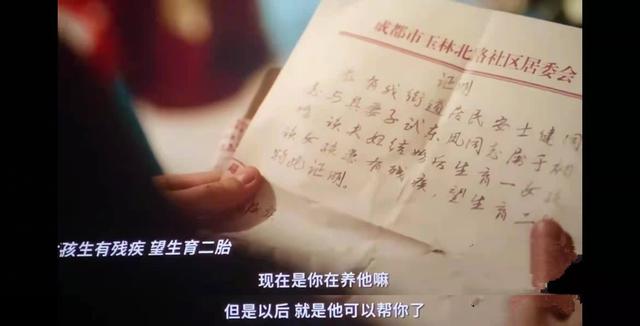 成都市玉林北路社区居委会
证明
兹有我街道居民安士健同
志与其妻子试东凤同志属于初
婚 该夫妇结婚后生育一女孩
该女孩患有残疾，望生育二
特此证明。
孩生有残疾 望生育二胎
现在是你在养他嘛
但是以后 就是他可以帮你了